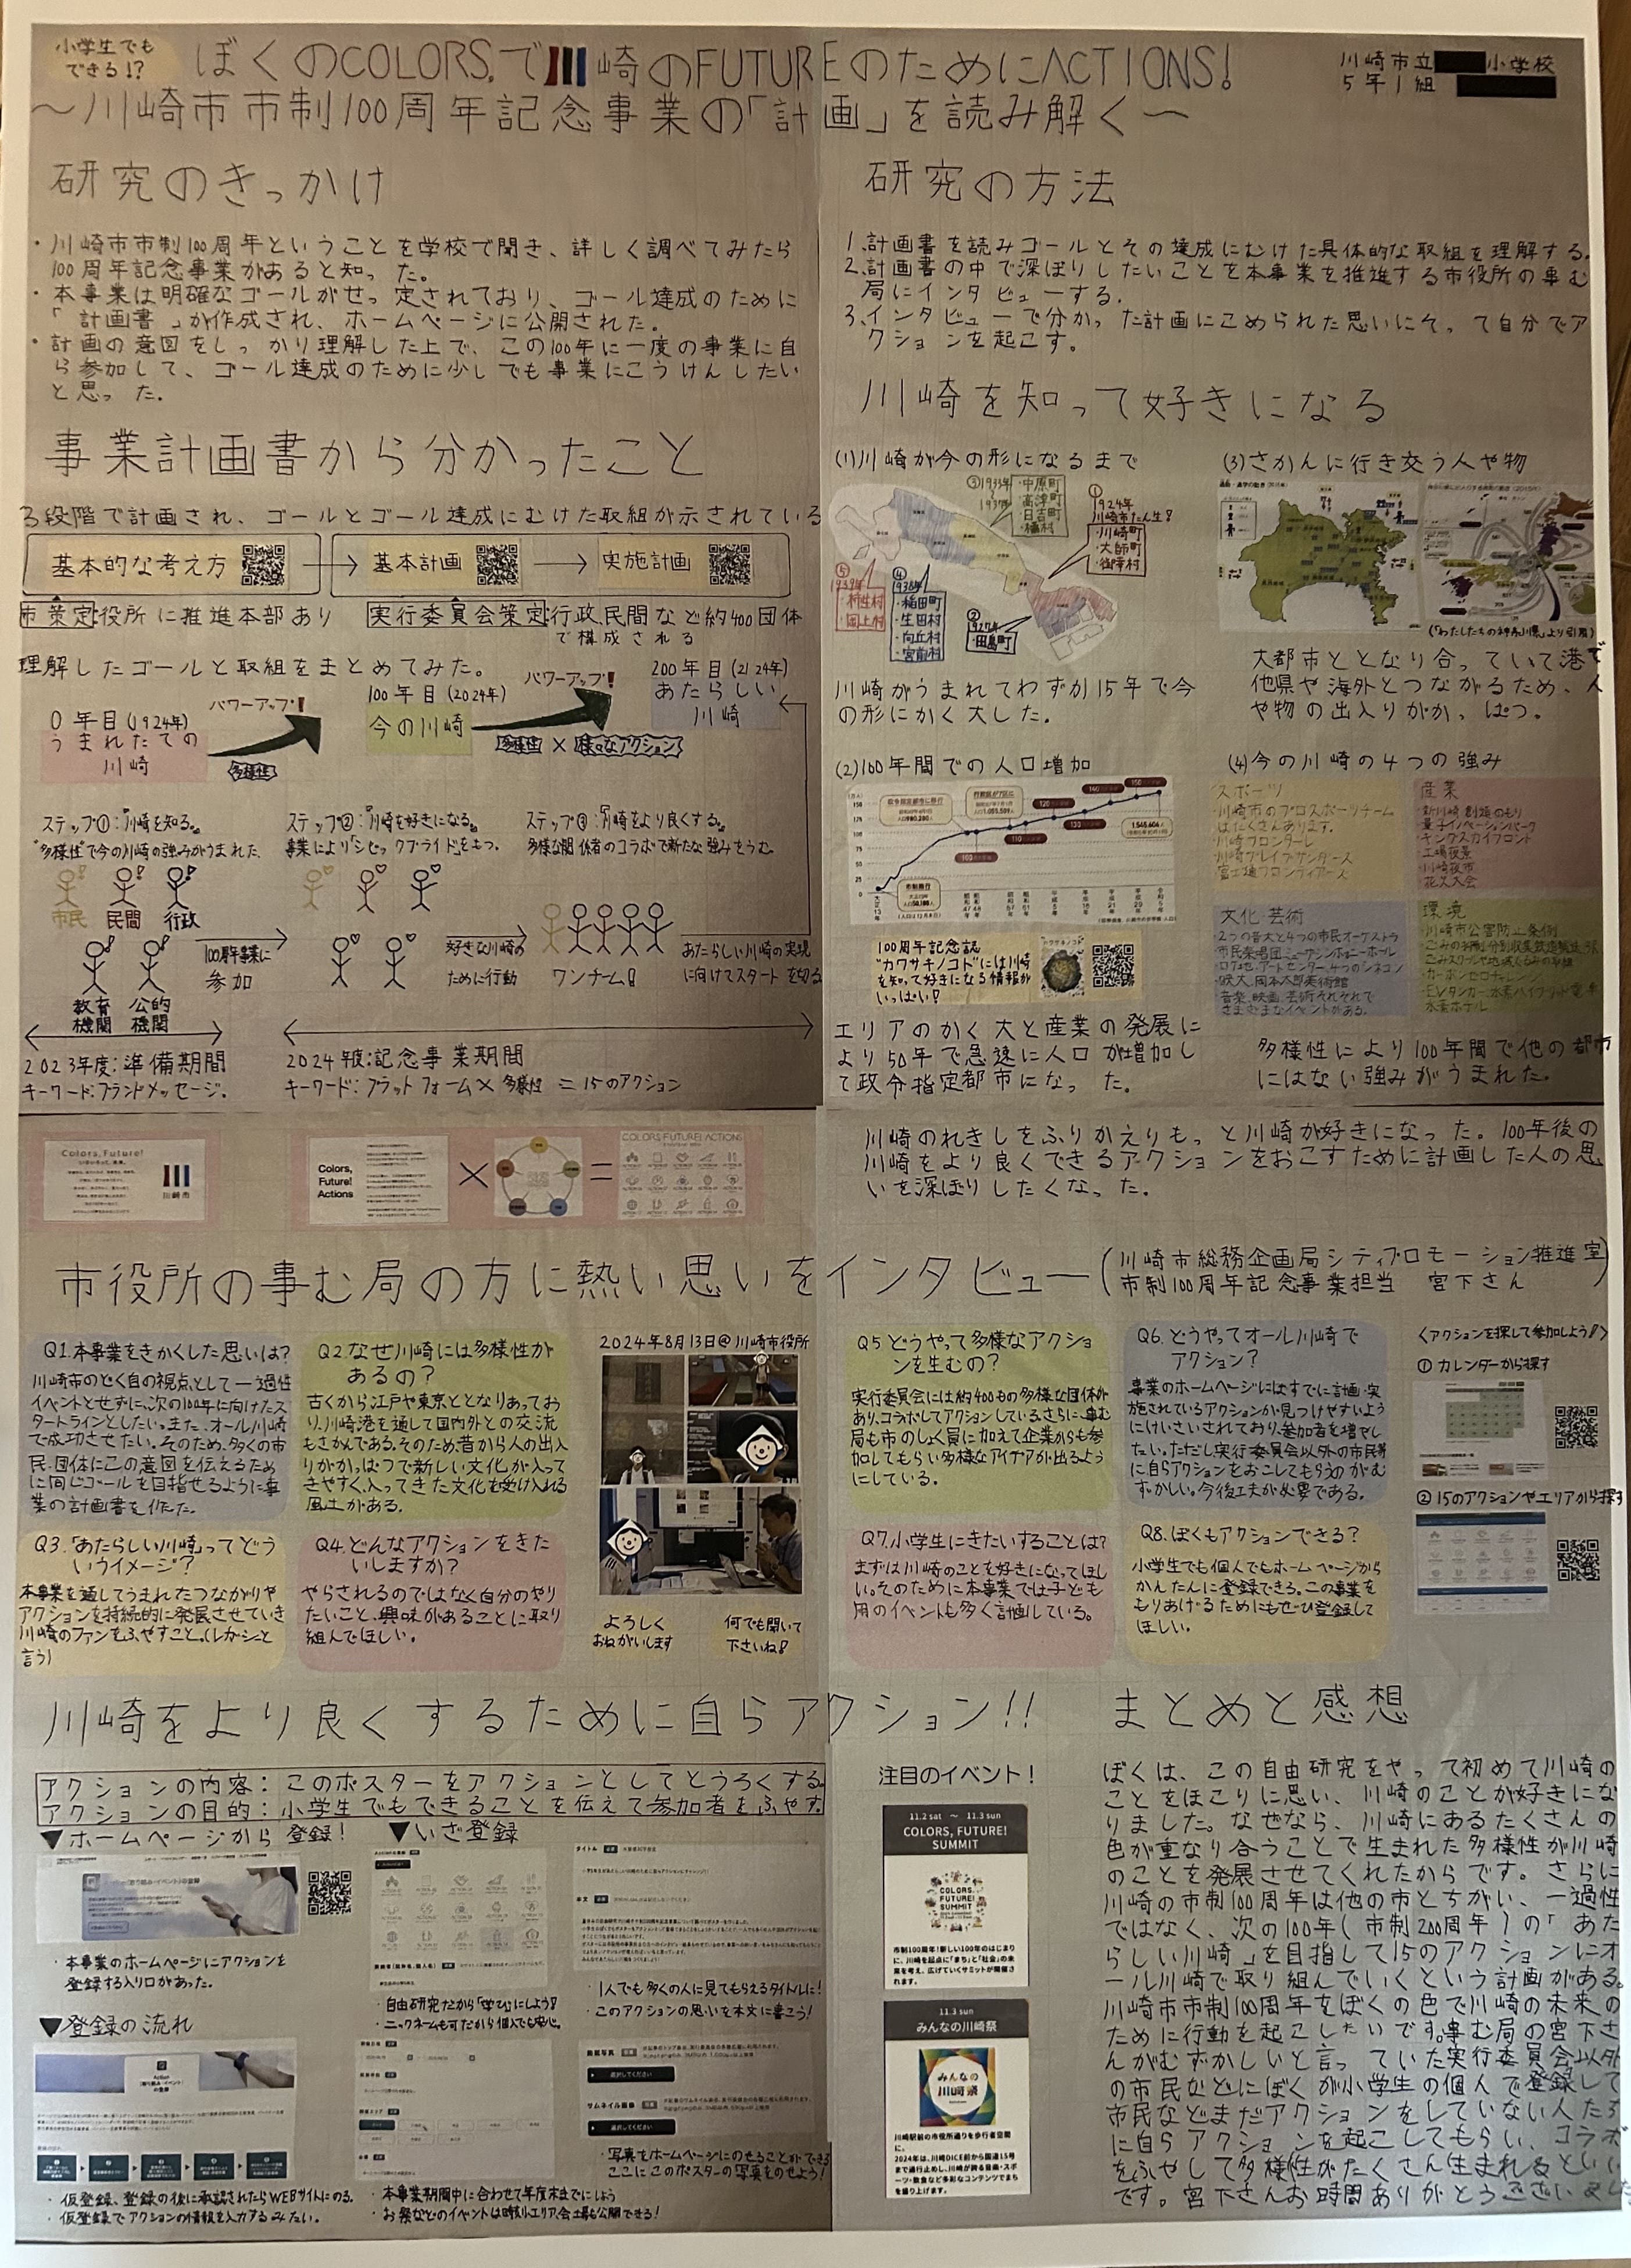 小学生でも
できる!?
ぼくのCOLORS,で川崎のFUTUREのためにACTIONS!
〜川崎市市制100周年記念事業の「計画」を読み解く〜
川崎市立 小学校
5年1組
研究のきっかけ
・川崎市市制100周年ということを学校で聞き、詳しく調べてみたら
100周年記念事業があると知った。
・本事業は明確なゴールがせっ定されており、ゴール達成のために
「計画書」が作成され、ホームページに公開された。
・計画の意図をしっかり理解した上で、この100年に一度の事業に自
ら参加して、ゴール達成のために少しでも事業にこうけんしたい
と思った。
研究の方法
1.計画書を読みゴールとその達成にむけた具体的な取組を理解する。
2.計画書の中で深ぼりしたいことを本事業を推進する市役所の事む
局にインタビューする。
3.インタビューで分かった計画にこめられた思いにそって自分でア
クションを起こす。
事業計画書から分かったこと
3段階で計画され、ゴールとゴール達成にむけた取組が示されている
基本的な考え方
基本計画
実施計画
市策定:役所に推進本部あり
実行委員会策定:行政,民間など約400団体
で構成される
理解したゴールと取組をまとめてみた。
0年目(1924年)
うまれたての
川崎
パワーアップ!
多様性
100年目(2024年)
今の川崎
パワーアップ!
多様性×様々なアクション
200年目(2124年)
あたらしい
川崎
ステップ①:「川崎を知る。」
"多様性"で今の川崎の強みがうまれた。
ステップ②:「川崎を好きになる。」
事業により「シビックプライド」をもつ。
ステップ③:「川崎をより良くする。」
多様な関係者のコラボで新たな強みをうむ。
市民
民間
行政
教育
機関
公的
機関
100周年事業に
参加
好きな川崎の
ために行動
ワンチーム!
あたらしい川崎の実現
に向けてスタートを切る
2023年度:準備期間
キーワード:ブランドメッセージ。
2024年度:記念事業期間
キーワード:プラットフォーム×多様性=15のアクション
Colors, Future!
川崎市
Colors,
Future!
Actions
×
=
COLORS, FUTURE! ACTIONS
川崎を知って好きになる
(1)川崎が今の形になるまで
①
1924年
川崎市たん生!
・川崎町
・大師町
・御幸村
②
1927年
・田島町
③1933年
〜
1937年
・中原町
・高津町
・日吉村
・橘村
④
1938年
・稲田町
・生田村
・向丘村
・宮前村
⑤
1939年
・柿生村
・岡上村
川崎がうまれてわずか15年で今
の形にかく大した。
(2)100年間での人口増加
100周年記念誌
"カワサキノコト"には川崎
を知って好きになる情報が
いっぱい!
エリアのかく大と産業の発展に
より50年で急速に人口が増加し
て政令指定都市になった。
(3)さかんに行き交う人や物
(「わたしたちの神奈川県」より引用)
大都市ととなり合っていて港で
他県や海外とつながるため、人
や物の出入りがかっぱつ。
(4)今の川崎の4つの強み
スポーツ
・川崎市のプロスポーツチーム
はたくさんあります。
・川崎フロンターレ
・川崎ブレイブサンダース
・富士通フロンティアーズ
産業
・新川崎・創造のもり
量子イノベーションパーク
・キングスカイフロント
・工場夜景
・川崎夜市
・花火大会
文化・芸術
・2つの音大と4つの市民オーケストラ
環境
・川崎市公害防止条例
・カーボンゼロチャレンジ
・水素ホテル
多様性により100年間で他の都市
にはない強みがうまれた。
川崎のれきしをふりかえりもっと川崎が好きになった。100年後の
川崎をより良くできるアクションをおこすために計画した人の思
いを深ぼりしたくなった。
市役所の事む局の方に熱い思いをインタビュー(川崎市総務企画局シティプロモーション推進室
市制100周年記念事業担当 宮下さん)
Q1.本事業をきかくした思いは?
川崎市のどく自の視点として一過性
イベントとせずに、次の100年に向けたス
タートラインとしたい。また、オール川崎
で成功させたい。そのため、多くの市
民・団体にこの意図を伝えるため
に同じゴールを目指せるように事
業の計画書を作た。
Q2.なぜ川崎には多様性が
あるの?
古くから江戸や東京ととなりあってお
り、川崎港を通して国内外との交流
もさかんである。そのため昔から人の出入
りがかっぱつで新しい文化が入って
きやすく、入ってきた文化を受け入れる
風土がある。
2024年8月13日@川崎市役所
よろしく
おねがいします
何でも聞いて
下さいね!
Q3.「あたらしい川崎」ってどう
いうイメージ?
本事業を通してうまれたつながりや
アクションを持続的に発展させていき
川崎のファンをふやすこと。(レガシーと
言う)
Q4.どんなアクションをきた
いしますか?
やらされるのではなく自分のやり
たいこと、興味があることに取り
組んでほしい。
Q5 どうやって多様なアクショ
ンを生むの?
実行委員会には約400もの多様な団体が
あり、コラボしてアクションしている。さらに、事む
局も市のしょく員に加えて企業からも参
加してもらい多様なアイデアが出るよう
にしている。
Q6.どうやってオール川崎で
アクション?
事業のホームページにはすでに計画・実
施されているアクションが見つけやすいよう
にけいさいされており、参加者を増やし
たい。ただし、実行委員会以外の市民等
に自らアクションをおこしてもらうのがむ
ずかしい。今後工夫が必要である。
Q7.小学生にきたいすることは?
まずは川崎のことを好きになってほし
い。そのために本事業では子ども
用のイベントも多く計画している。
Q8.ぼくもアクションできる?
小学生でも個人でもホームページから
かんたんに登録できる。この事業を
もりあげるためにもぜひ登録して
ほしい。
〈アクションを探して参加しよう!〉
① カレンダーから探す
② 15のアクションやエリアから探す
川崎をより良くするために自らアクション!!
アクションの内容:このポスターをアクションとしてとうろくする。
アクションの目的:小学生でもできることを伝えて参加者をふやす。
▼ホームページから登録!
・本事業のホームページにアクションを
登録する入り口があった。
▼登録の流れ
・仮登録、登録の後に承認されたらWEBサイトにのる。
・仮登録でアクションの情報を入力するみたい。
▼いざ登録
・自由研究だから「学び」にしよう!
・ニックネームも可だから個人でも安心。
・本事業期間中に合わせて年度末までにしよう
・お祭などのイベントは時刻、エリア、会場も公開できる!
・1人でも多くの人に見てもらえるタイトルに!
・このアクションの思いを本文に書こう!
サムネイル画像
・写真をホームページにのせることができる
ここにこのポスターの写真をのせよう!
注目のイベント!
11.2 sat 〜 11.3 sun
COLORS, FUTURE!
SUMMIT
COLORS,
FUTURE!
SUMMIT
市制100周年!新しい100年のはじまり
に、川崎を起点に「まち」と「社会」の未
来を考え、広げていくサミットが開催さ
れます。
11.3 sun
みんなの川崎祭
みんなの
川崎祭
川崎駅前の市役所通りを歩行者空間
に。
2024年は、川崎DICE前から国道15号
まで通行止めし、川崎が誇る音楽・スポ
ーツ・飲食など多彩なコンテンツでまち
を盛り上げます。
まとめと感想
ぼくは、この自由研究をやって初めて川崎の
ことをほこりに思い、川崎のことが好きにな
りました。なぜなら、川崎にあるたくさんの
色が重なり合うことで生まれた多様性が川崎
のことを発展させてくれたからです。さらに
川崎の市制100周年は他の市とちがい、一過性
ではなく、次の100年(市制200周年)の「あた
らしい川崎」を目指して15のアクションにオ
ール川崎で取り組んでいくという計画がある。
川崎市市制100周年をぼくの色で川崎の未来の
ために行動を起こしたいです。事む局の宮下さ
んがむずかしいと言っていた実行委員会以外
の市民などにぼくが小学生の個人で登録して
市民などまだアクションをしていない人たち
に自らアクションを起こしてもらい、コラボ
をふやして多様性がたくさん生まれるといい
です。宮下さんお時間ありがとうございました